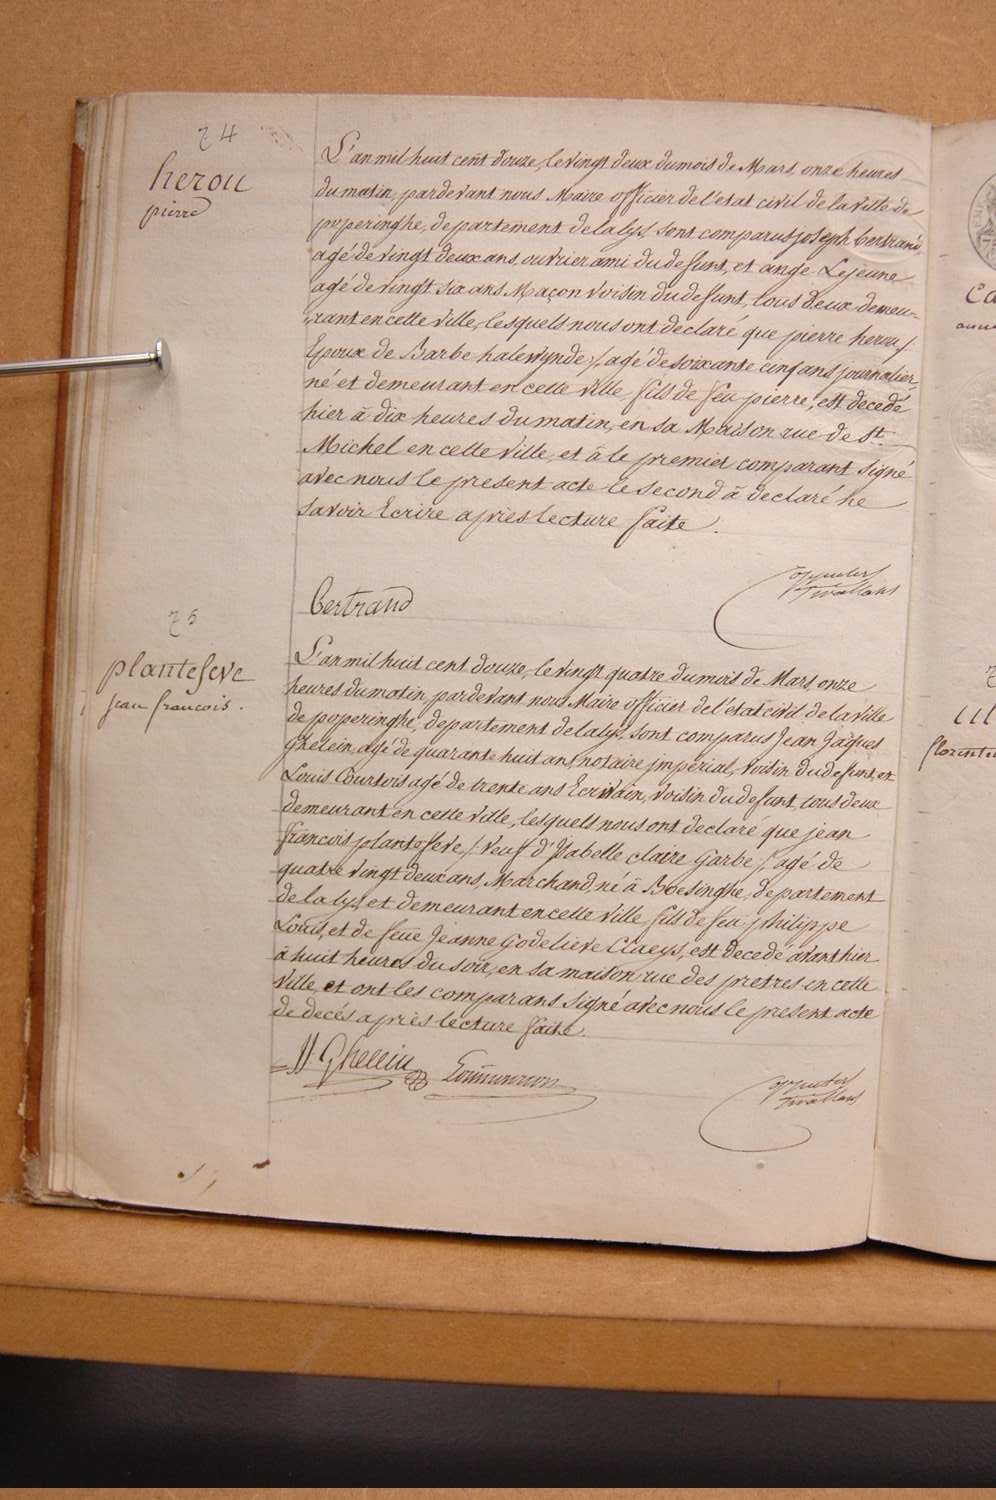 74
herou
pierre
L'an mil huit cent douze, le vingt deux du mois de Mars, onze heures
du matin, pardevant nous Maire officier de l'etat civil de la ville de
poperinghe, departement de la lys, sont comparus joseph bertrand,
agé de vingt deux ans, ouvrier ami du defunt, et ange Lejeune
agé de vingt six ans Maçon voisin du defunt, tous deux demeu-
rant en cette ville, lesquels nous ont declaré que pierre herou /
Epoux de Barbe halewynde /, agé de soixante cinq ans journalier,
né et demeurant en cette ville fils de feu pierre, est decedé
hier à dix heures du matin, en sa Maison rue de St.
Michel en cette ville, et à le premier comparant signé
avec nous le present acte le second à declaré ne
savoir Ecrire après lecture faite.
Bertrand
75
plantefeve
jean francois.
L'an mil huit cent douze, le vingt quatre du mois de Mars, onze
heures du matin, pardevant nous Maire officier de l'état civil de la ville
de poperinghe, departement de la lys, sont comparus Jean Jaques
Ghelein agé de quarante huit ans, notaire imperial, voisin du defunt, et
Louis Courtois agé de trente ans Ecrivain, voisin du defunt, tous deux
demeurant en cette ville, lesquels nous ont declaré que jean
françois plantefeve / veuf d'Isabelle claire Garbe /, agé de
quatre vingt deux ans, Marchand, né à Boesinghe, departement
de la lys et demeurant en cette ville fils de feu philippe
Louis, et de feue Jeanne Godelieve Claeys, est decedé avant hier
à huit heures du soir, en sa maison rue des pretres en cette
ville, et ont les comparans signé avec nous le present acte
de decés après lecture faite.
JJ. Ghelein
florentin